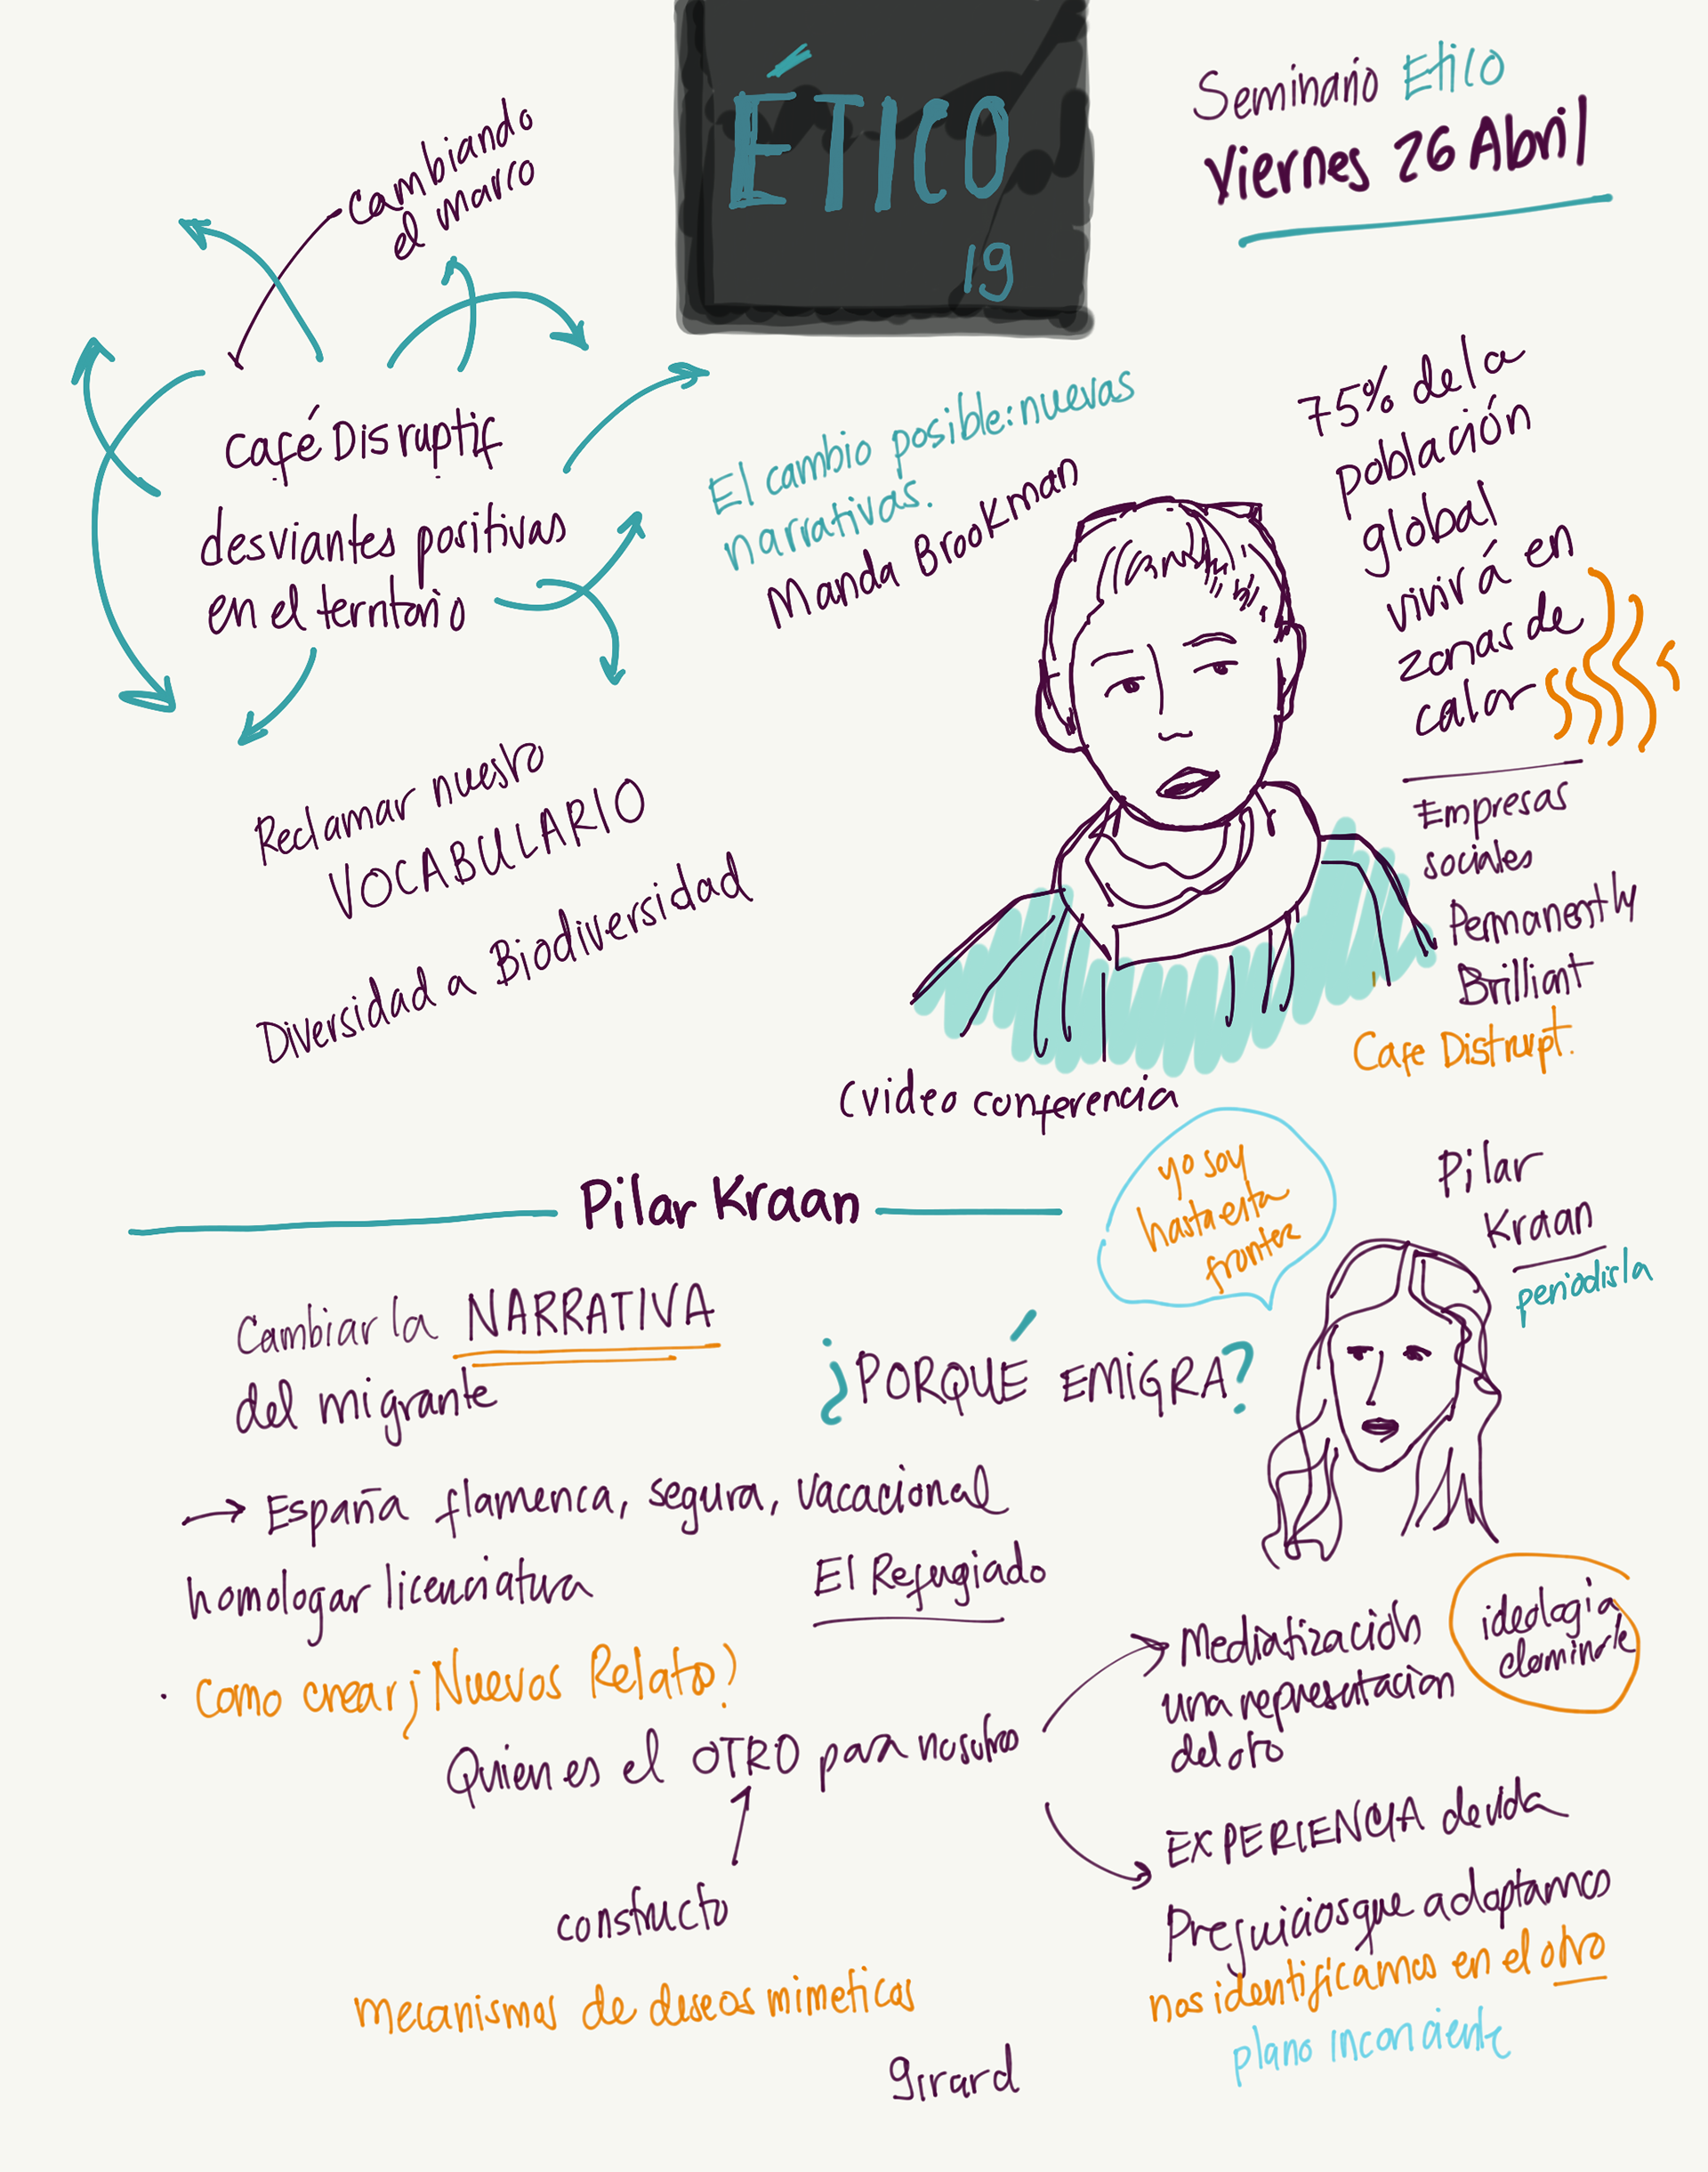 ÉTICO
19
Seminario Etico
Viernes 26 Abril
cambiando
el marco
Café Disruptif
desviantes positivas
en el territorio
El cambio posible: nuevas
narrativas.
Manda Brookman
75% de la
población
global
vivirá en
zonas de
calor
Empresas
sociales
Permanently
Brilliant
Cafe Distrupt.
Reclamar nuestro
VOCABULARIO
Diversidad a Biodiversidad
(video conferencia
Pilar Kraan
yo soy
hasta esta
fronter
Pilar
Kraan
periodista
Cambiar la NARRATIVA
del migrante
¿PORQUÉ EMIGRA?
→ España flamenca, segura, vacacional
homologar licenciatura
El Refugiado
· como crear ¡Nuevos Relatos?
Quien es el OTRO para nosotros
Mediatización
una representacion
del otro
ideologia
dominate
EXPERIENCIA de vida
Prejuicios que adoptamos
nos identificamos en el otro
plano inconciente
constructo
mecanismos de deseos mimeticos
Girard